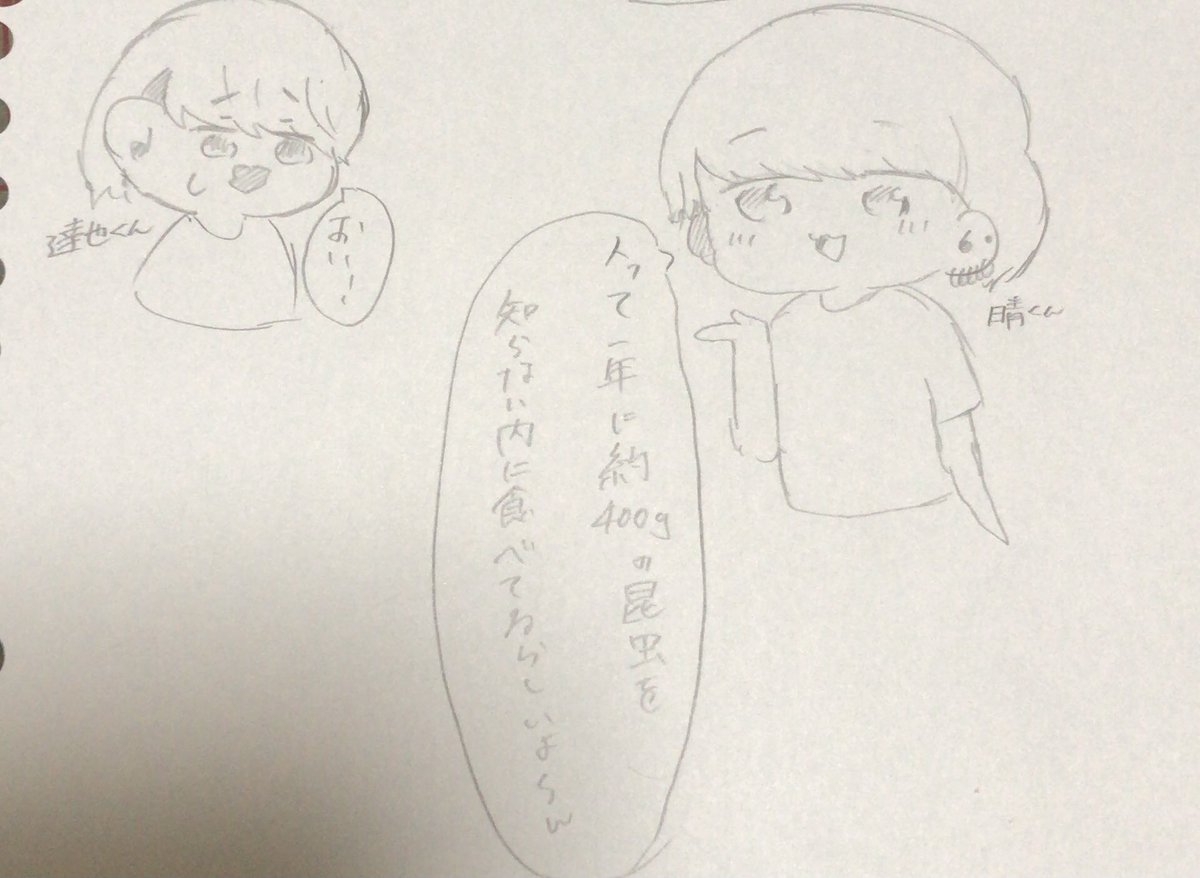 人って一年に約400gの昆虫を
知らない内に食べてるらしいよ〜w
おい!
達也くん
晴くん